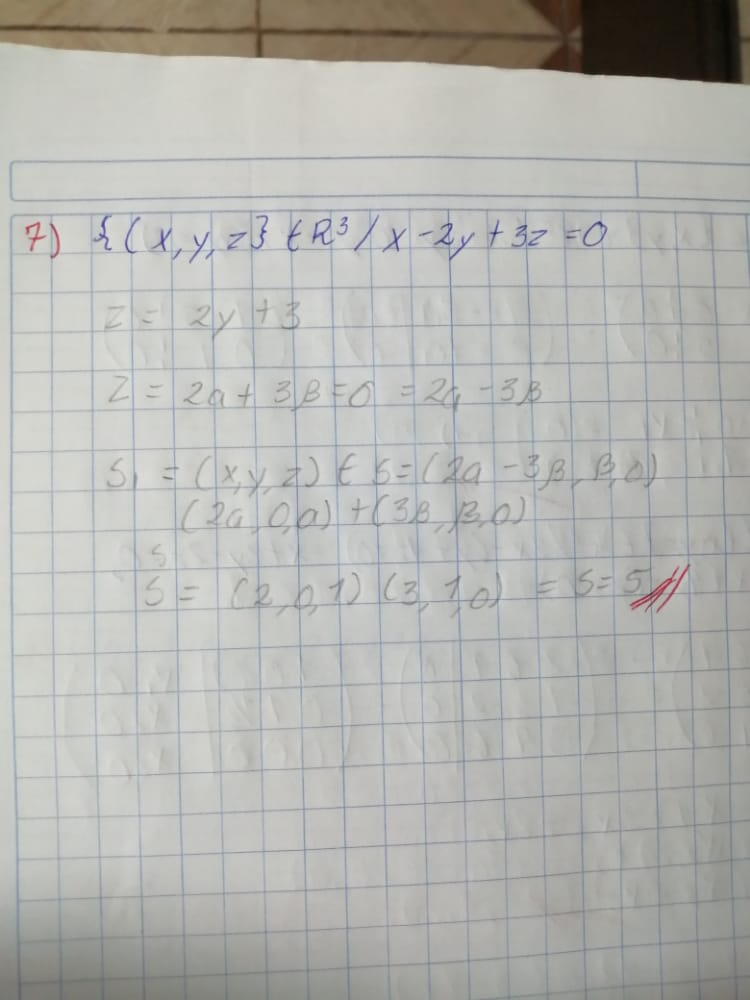 7) {(x,y,z} ∈ R³ / x - 2y + 3z = 0
z = 2y + 3
z = 2a + 3β = 0 = 2a - 3β
S₁ = (x,y,z) ∈ S = (2a - 3β, β, 0)
(2a, 0, a) + (3β, β, 0)
S
S = (2, 0, 1) (3, 1, 0) = S = 5